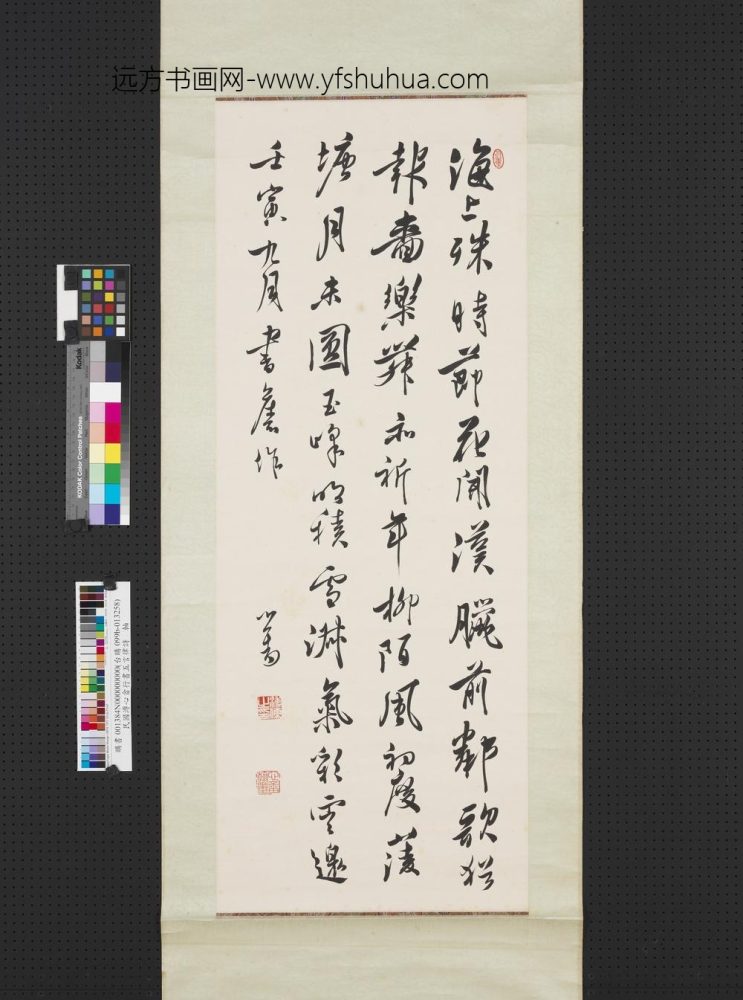 远方书画网-www.yfshuhua.com
海上殊時節花開漢臘前鄰歌猶
報嗇樂舞知祈年柳陌風初度菱
塘月未圓玉峰明積雪淑氣彩雲邊
壬寅九月書舊作
心畬
Kodak
KODAK Color Control Patches
購書 001384N000000000(台購 099b-013258)
民國溥心畬行書五言律詩 軸